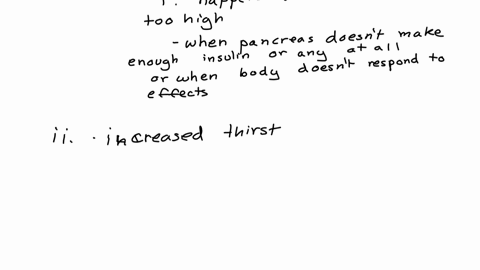 i. happen
too high
- when pancreas doesn't make
enough insulin or any at all
or when body doesn't respond to
effects
ii. · increased thirst